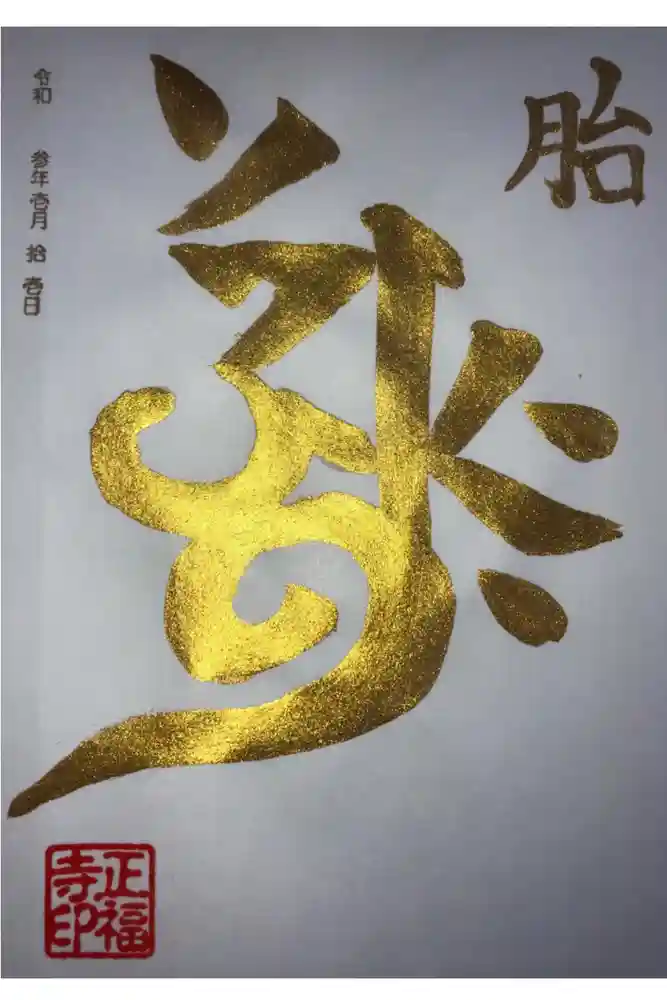 胎
令和 参年壱月拾壱日
正福
寺印